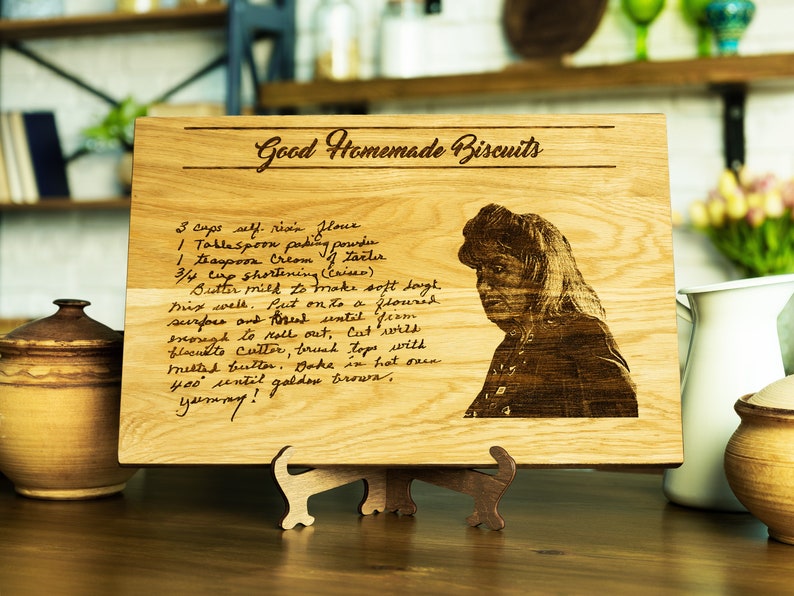 Good Homemade Biscuits
3 cups self-risin flour
1 Tablespoon baking powder
1 teaspoon cream of tarter
3/4 cup shortening (Crisco)
Butter milk to make soft dough
mix well. Put on to a floured
surface and knead until firm
enough to roll out. Cut with
biscuit cutter, brush tops with
melted butter. Bake in hot oven
400° until golden brown.
yummy!